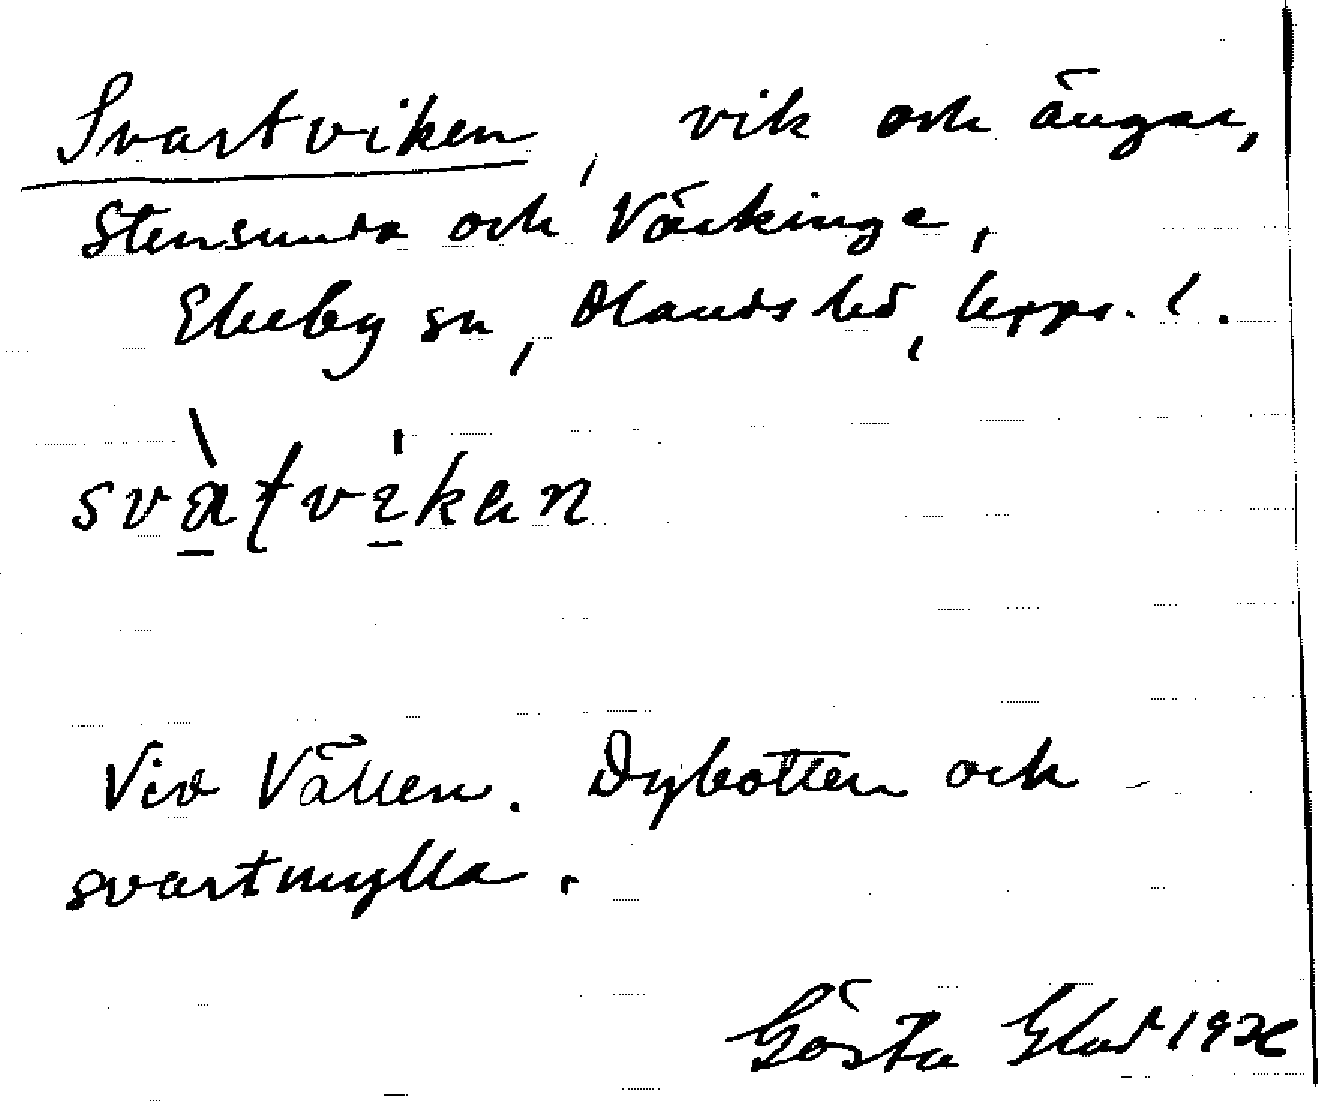 Svartviken, vik och ängar,
Stensunda och Väckinge,
Ekeby sn, Olands hd, Upps. l.
svatvikan
Vid Vällen. Dybotten och
svartmylla.
Gösta Glad